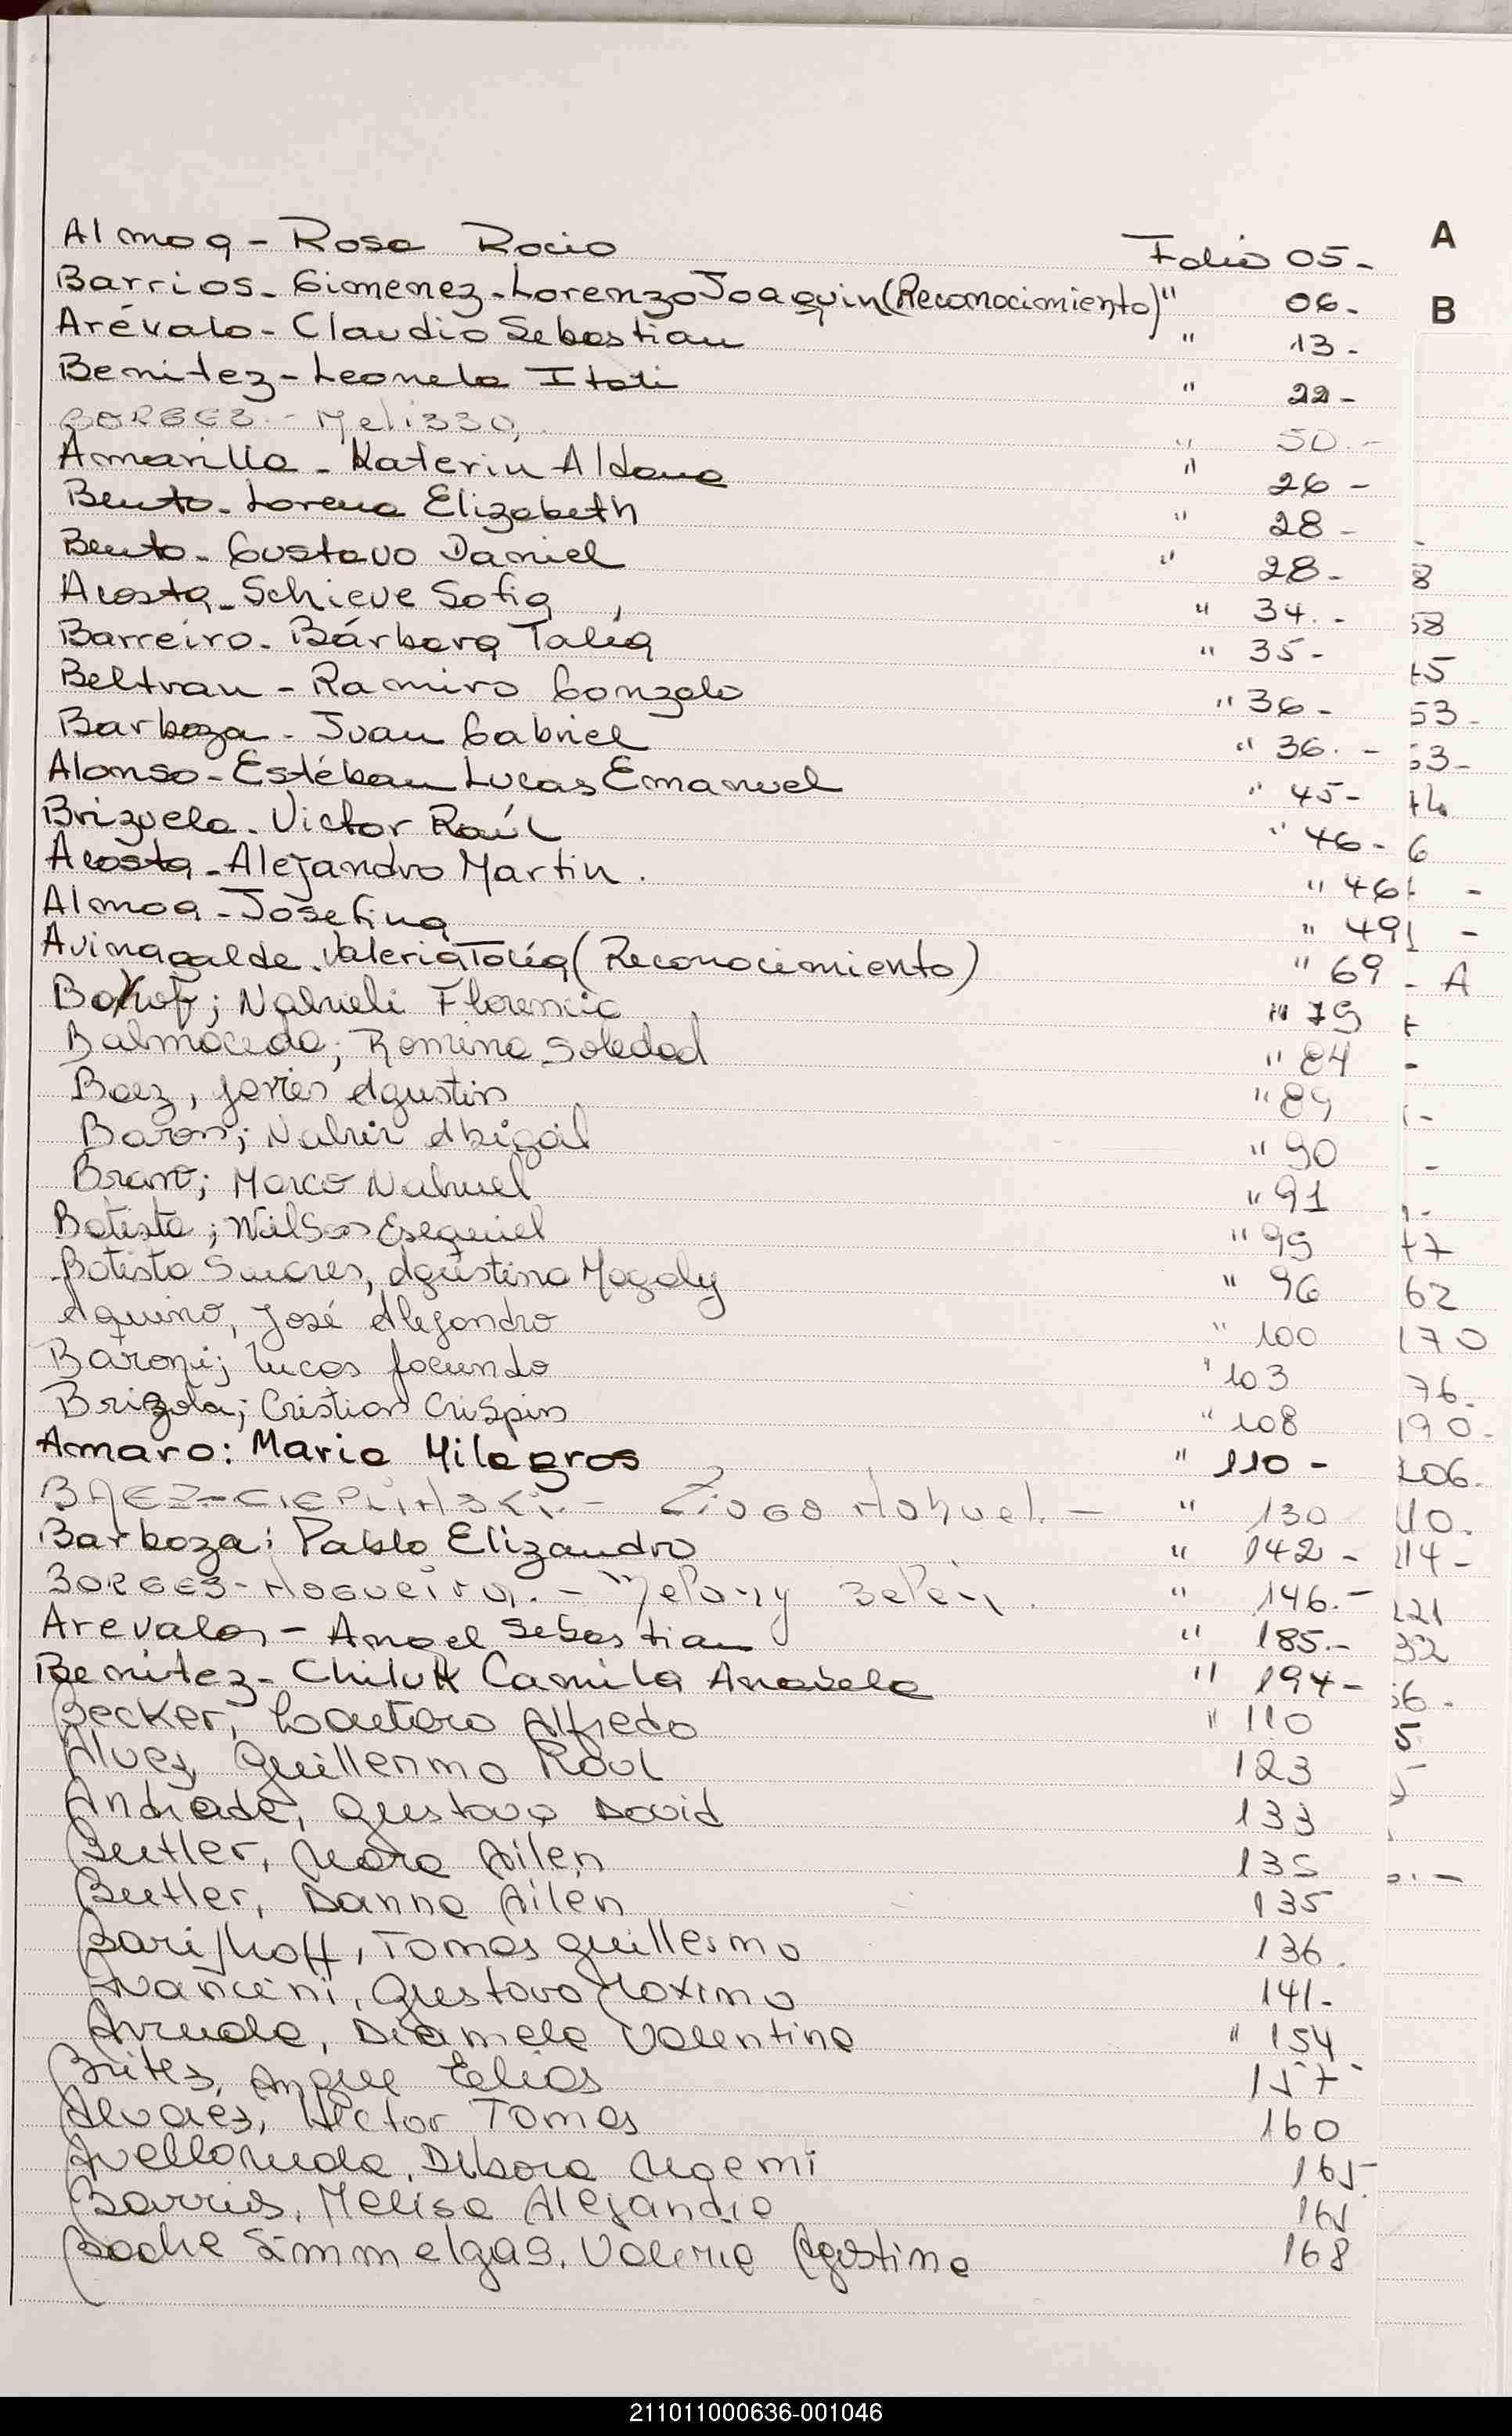 Almoa - Rosa Rocio Folio 05-
Barrios - Gimenez - Lorenzo Joaquin (Reconocimiento) " 06-
Arévalo - Claudio Sebastian " 13-
Benitez - Leonela Itati " 22-
BORGES - Melissa, " 50.-
Amarilla - Katerin Aldana " 26-
Bento - Lorena Elizabeth " 28-
Bento - Gustavo Daniel " 28-
Acosta - Schieve Sofia " 34.-
Barreiro - Bárbara Talía " 35-
Beltran - Ramiro Gonzalo " 36-
Barboza - Juan Gabriel " 36.-
Alonso - Estéban Lucas Emanuel " 45-
Brizuela - Victor Raúl " 46-
Acosta - Alejandro Martin. " 46
Almoa - Josefina " 49
Avinagalde - Valeria Talía (Reconocimiento) " 69
Nahueli Florencia " 79
Balmaceda; Romina Soledad " 84
Baez, Javier Agustin " 89
Baron; Nahir Abigail " 90
Bravo; Marco Nahuel " 91
Batista; Wilson Esequiel " 95
Batista Suares, Agustina Magaly " 96
Aquino, José Alejandro " 100
Baroni; Lucas Facundo " 103
Brizola; Cristian Crispin " 108
Amaro: Maria Milagros " 110-
BAEZ - CIEPLINSKI.- Ziago Nahuel.- " 130
Barboza: Pablo Elizandro " 142-
BORGES - Nogueira.- Melany Belén. " 146.-
Arevalo - Angel Sebastian " 185.-
Benitez - Chiluk Camila Anabela " 194-
Becker, Lautaro Alfredo " 110
Alvez, Guillermo Raul 123
Andrade, Gustavo David 133
Butler, Nara Ailén 135
Butler, Danna Ailén 135
Barijhoff, Tomas Guillermo 136.
Avancini, Gustavo Maximo 141-
Arruda, Diamela Valentina " 154
Brites, Angel Elias 157
Alvares, Hector Tomas 160
Avellaneda, Debora Noemi 165
Barrios, Melisa Alejandra 165
Bache Simmelgas, Valeria Agostina 168
A
B
8
58
53-
A
62
170
76.
190.
206.
211011000636-001046